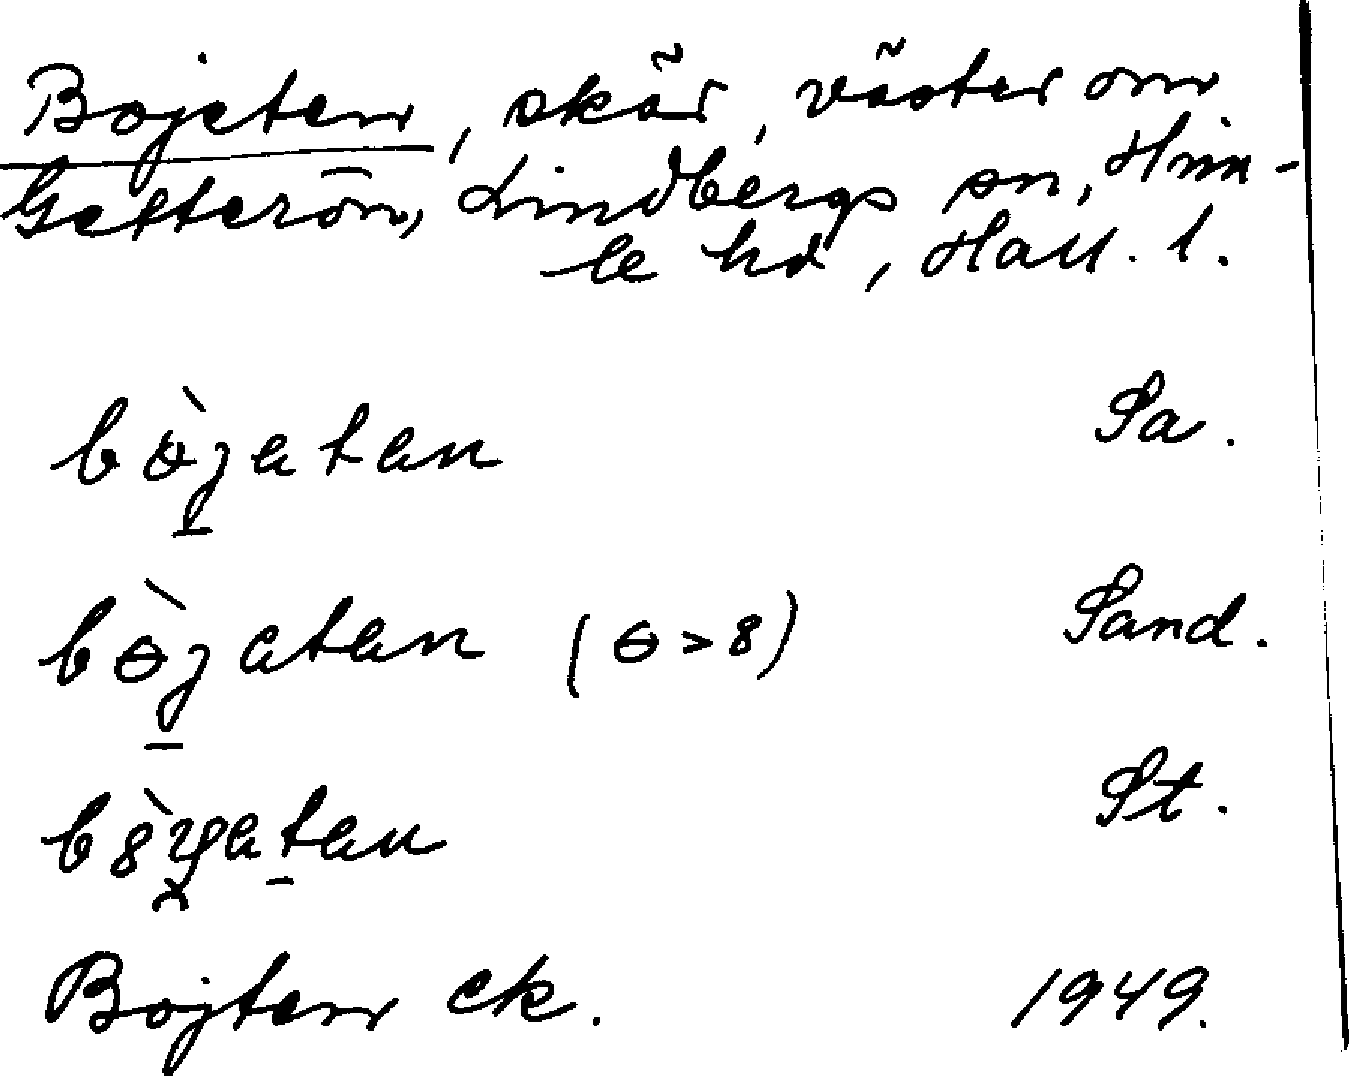 Bojeten, skär, väster om
Getterön, Lindbergs sn, Him-
le hd, Hall. l.
bɵ̀jatan Sa.
bɵ̀jatan (ɵ > 8) Sand.
St.
Bojten ek. 1949.